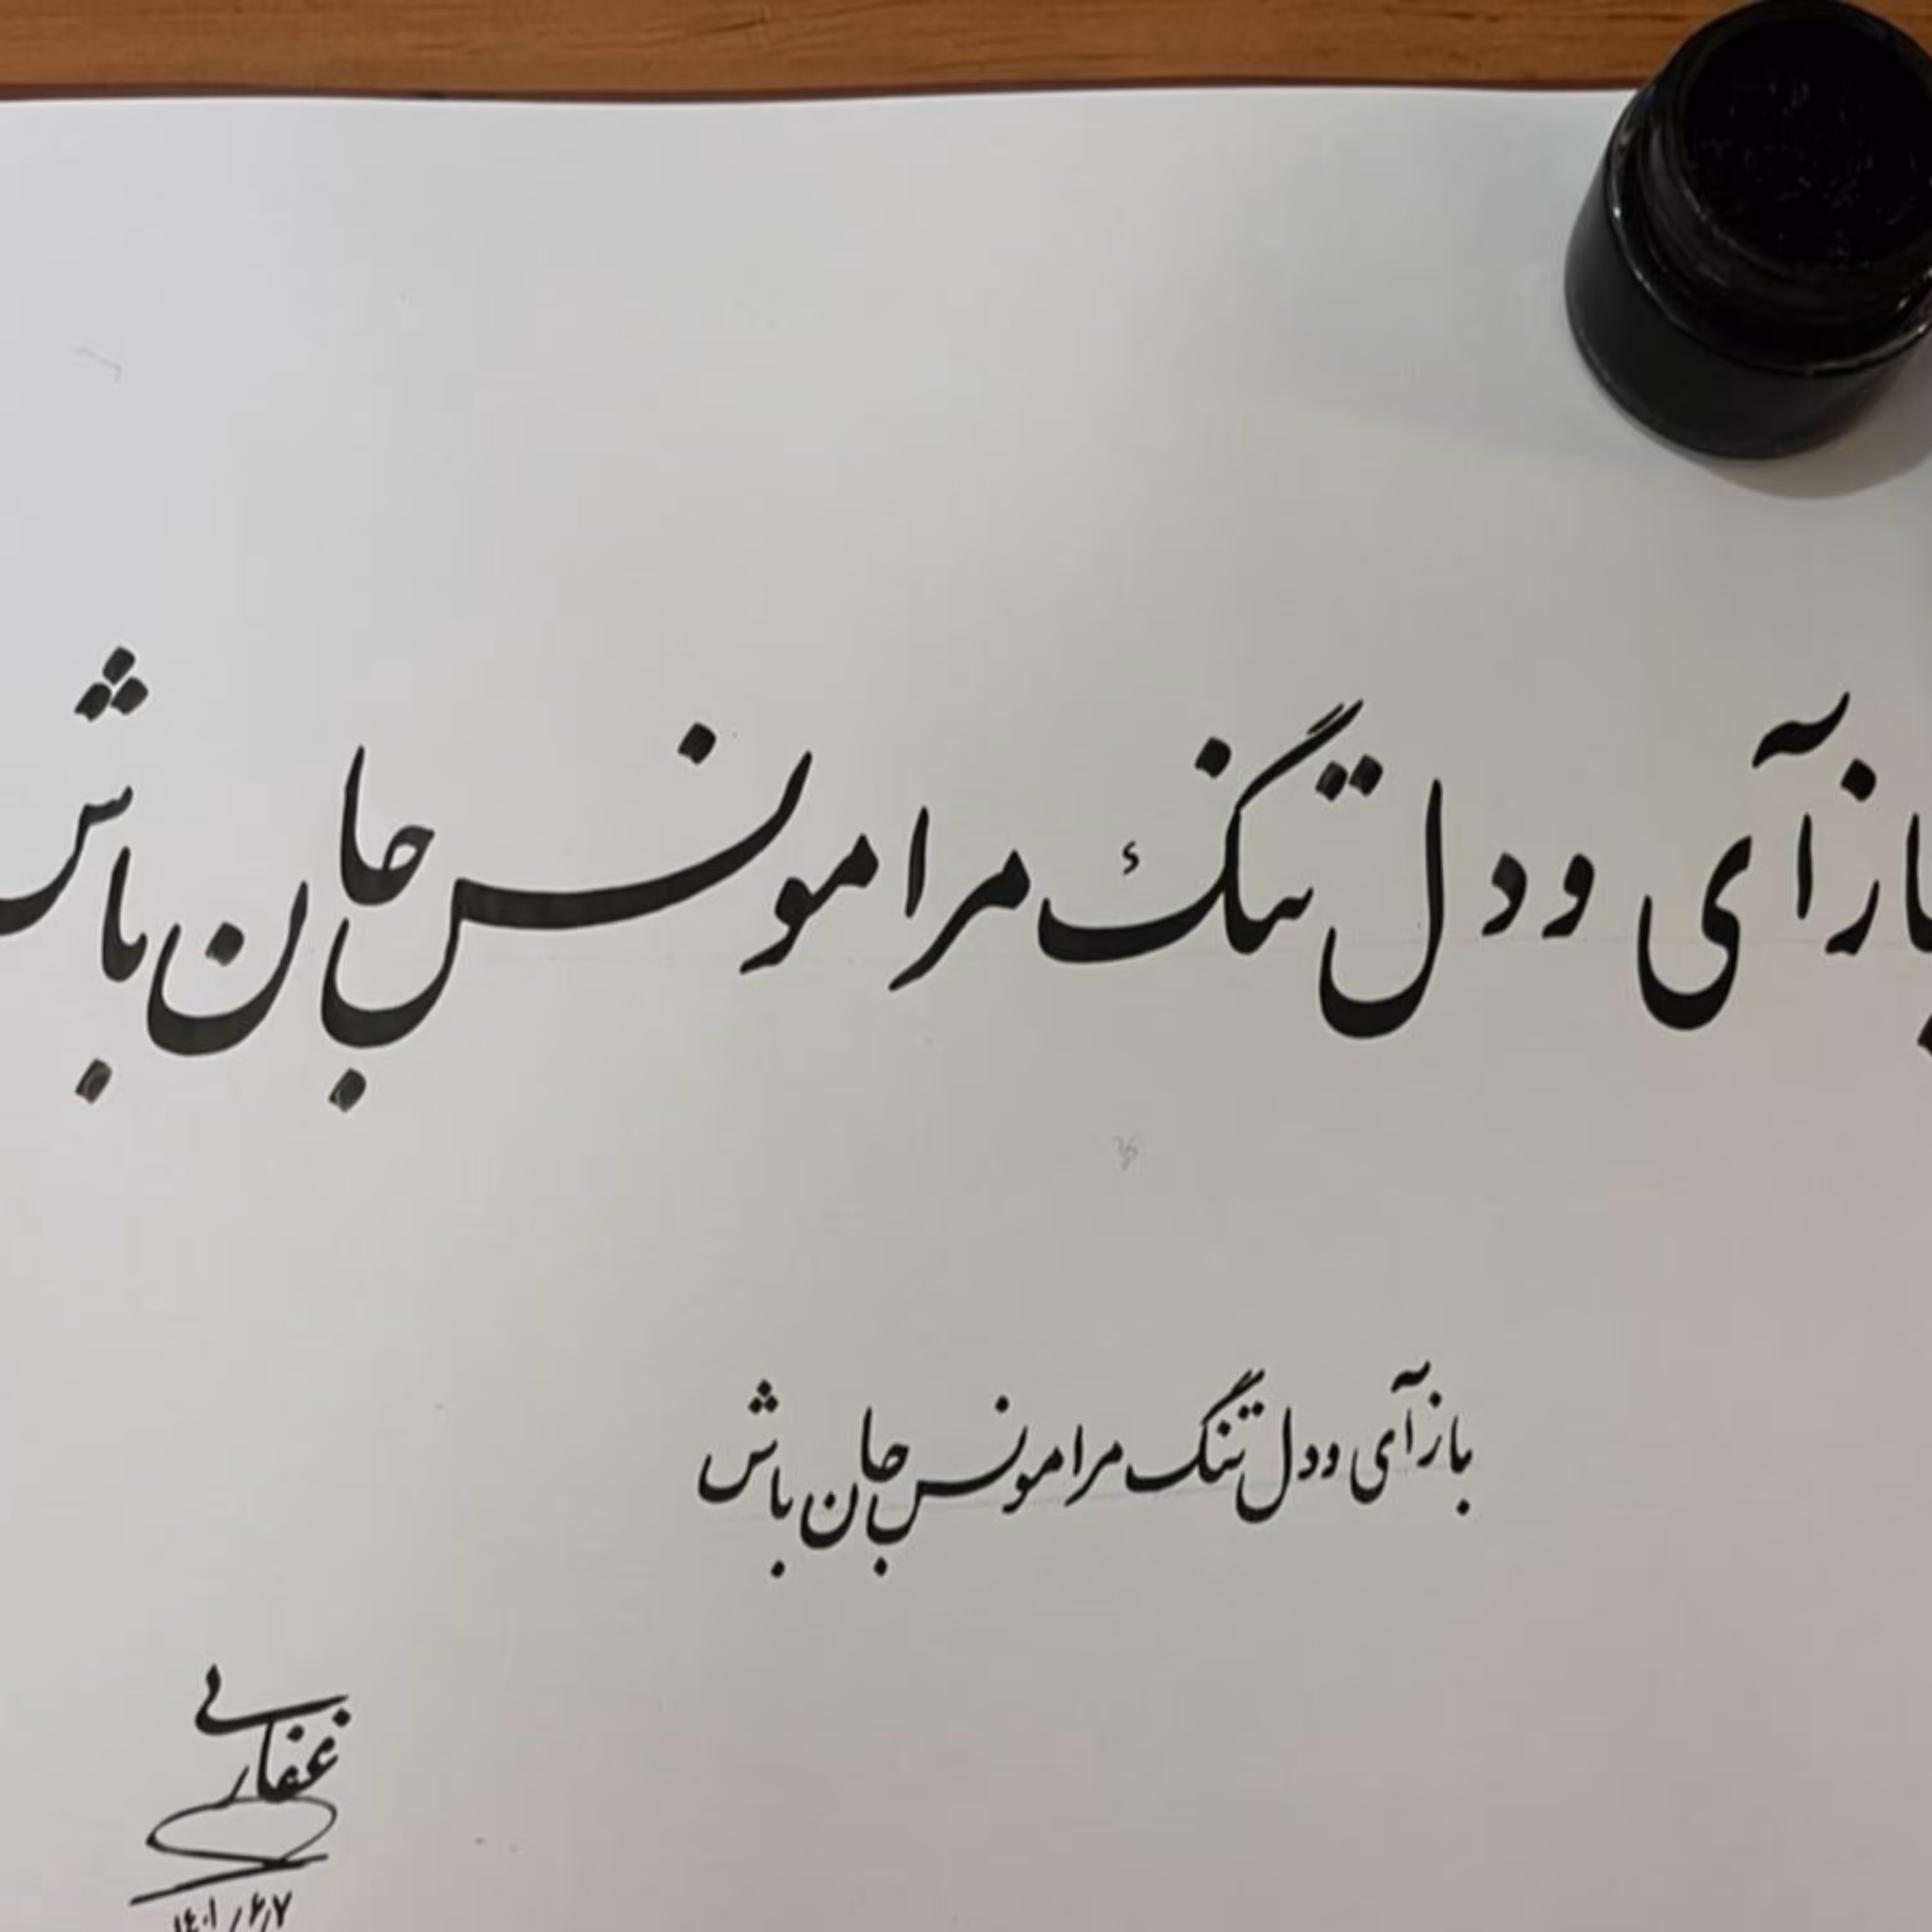 بازآی و دل تنگ مرا مونس جان باش
بازآی و دل تنگ مرا مونس جان باش
غفاری
۱۴۰۱/۶/۷